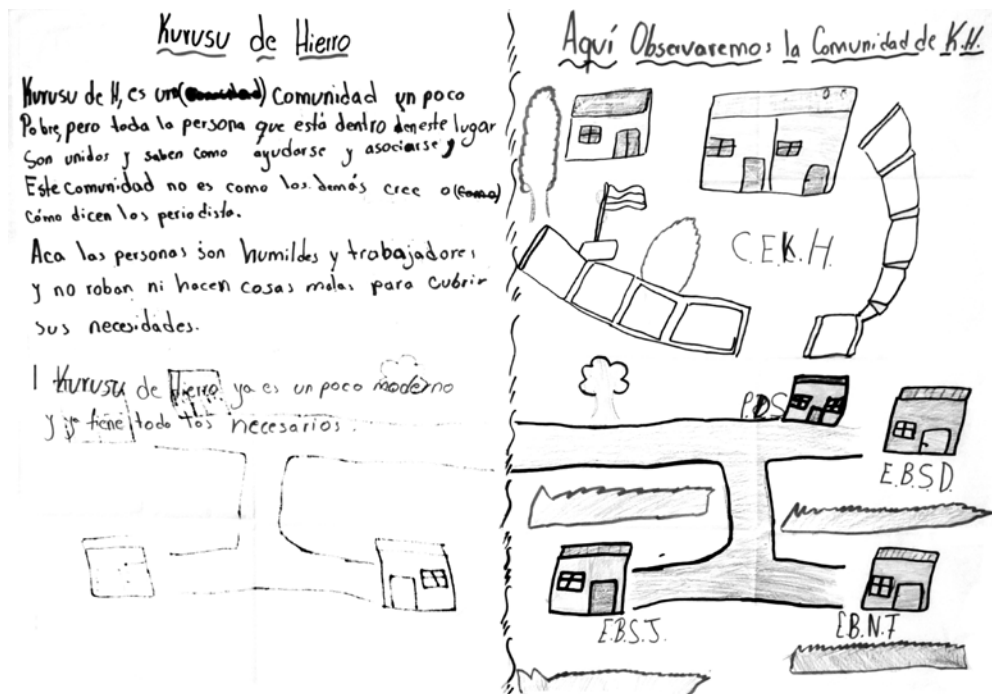 Kurusu de Hierro
Kurusu de H, es una () comunidad un poco
Pobre, pero toda la persona que está dentro den este lugar
Son unidos y saben como ayudarse y asociarse,
Este comunidad no es como los demás cree o (como)
cómo dicen los periodista.
Aca las personas son humildes y trabajadores
y no roban ni hacen cosas malas para cubrir
sus necesidades.
Kurusu de Hierro ya es un poco moderno
y ya tiene todo los necesarios.
Aquí Observaremos la Comunidad de K.H.
C.E.K.H.
P.D.S
E.B.S.D.
E.B.S.J.
E.B.N.F